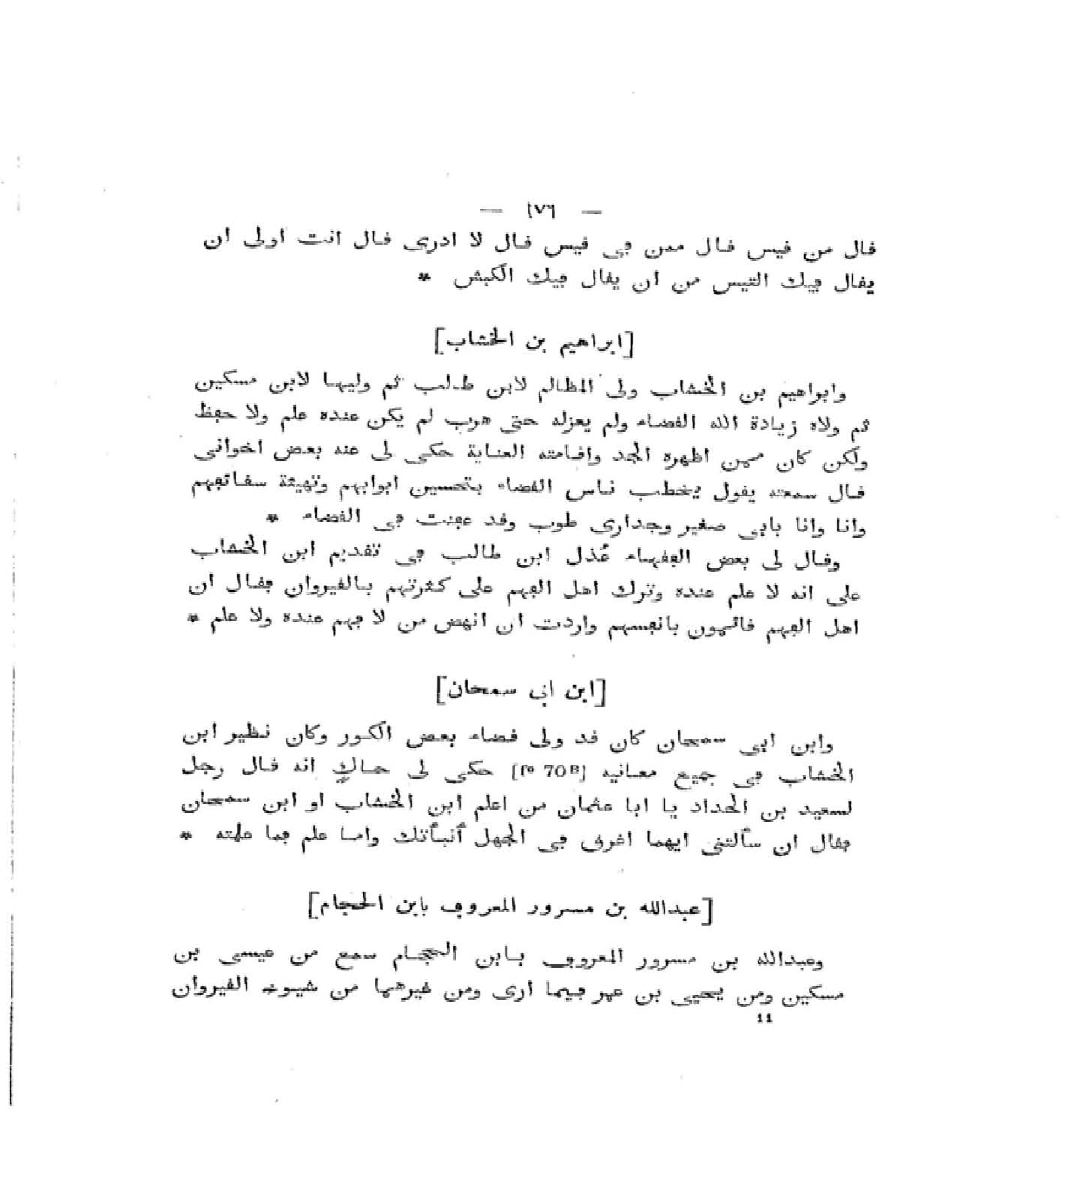 — ١٧٦ —
قال من قيس قال ممن في قيس قال لا ادرى قال انت اولى ان
يقال فيك التيس من ان يقال فيك الكبش *
[ابراهيم بن الخشاب]
وابراهيم بن الخشاب ولى المظالم لابن طالب ثم وليها لابن مسكين
ثم ولاه زيادة الله القضاء ولم يعزله حتى هرب لم يكن عنده علم ولا حفظ
ولكن كان ممن اظهره الجد واقامته العناية حكى لى عنه بعض اخوانى
قال سمعته يقول يخطب ناس القضاء بتحسين ابوابهم وتهيئة سقائفهم
وانا وانا بابى صغير وجدارى طوب وقد عجنت فى القضاء *
وقال لى بعض الفقهاء عُذل ابن طالب فى تقديم ابن الخشاب
على انه لا علم عنده وترك اهل الفهم على كثرتهم بالقيروان فقال ان
اهل الفهم قائمون بانفسهم واردت ان انهض من لا فهم عنده ولا علم *
[ابن ابى سمحان]
وابن ابى سمحان كان قد ولى قضاء بعض الكور وكان نظير ابن
الخشاب فى جميع معانيه [fº 70ᴮ] حكى لى حاكٍ انه قال رجل
لسعيد بن الحداد يا ابا عثمان من اعلم ابن الخشاب او ابن سمحان
فقال ان سألتنى ايهما اغرق فى الجهل أنبأتك واما علم فما علمته *
[عبدالله بن مسرور المعروف بابن الحجام]
وعبدالله بن مسرور المعروف بابن الحجام سمع من عيسى بن
مسكين ومن يحيى بن عمر فيما ارى ومن غيرهما من شيوخ القيروان
11